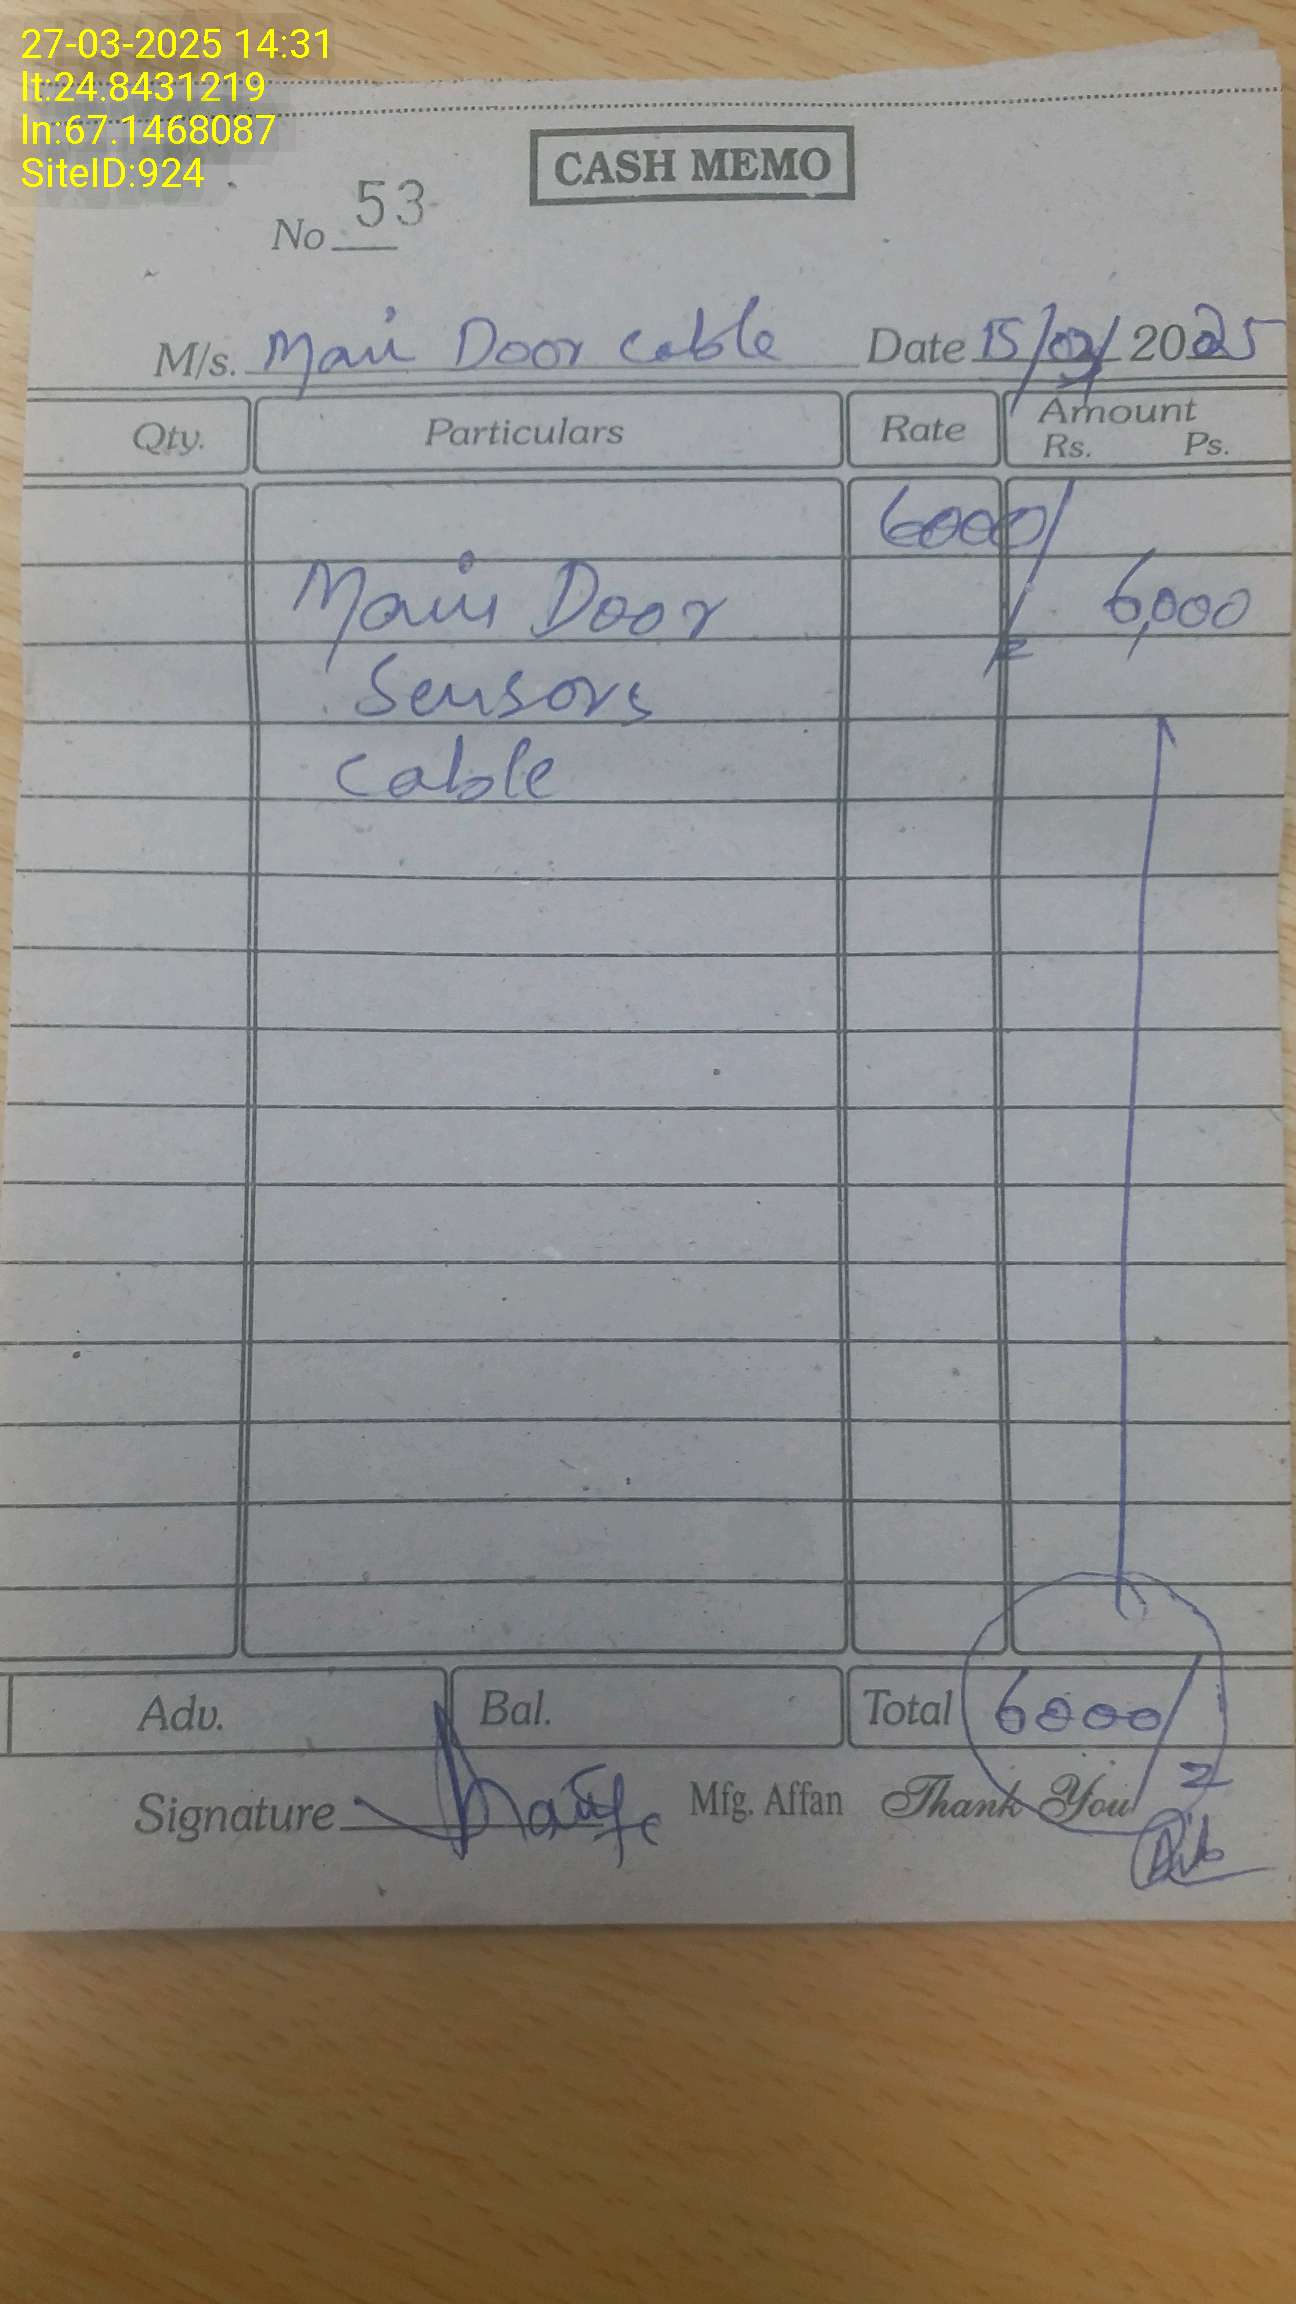 27-03-2025 14:31
lt:24.8431219
ln:67.1468087
SiteID:924
CASH MEMO
No 53
M/s. Main Door Cable Date 15/02/2025
Qty. Particulars Rate Amount
Rs. Ps.
6000/
Main Door 6,000
Sensors
Cable
Adv. Bal. Total 6000/
Signature Mfg. Affan Thank You